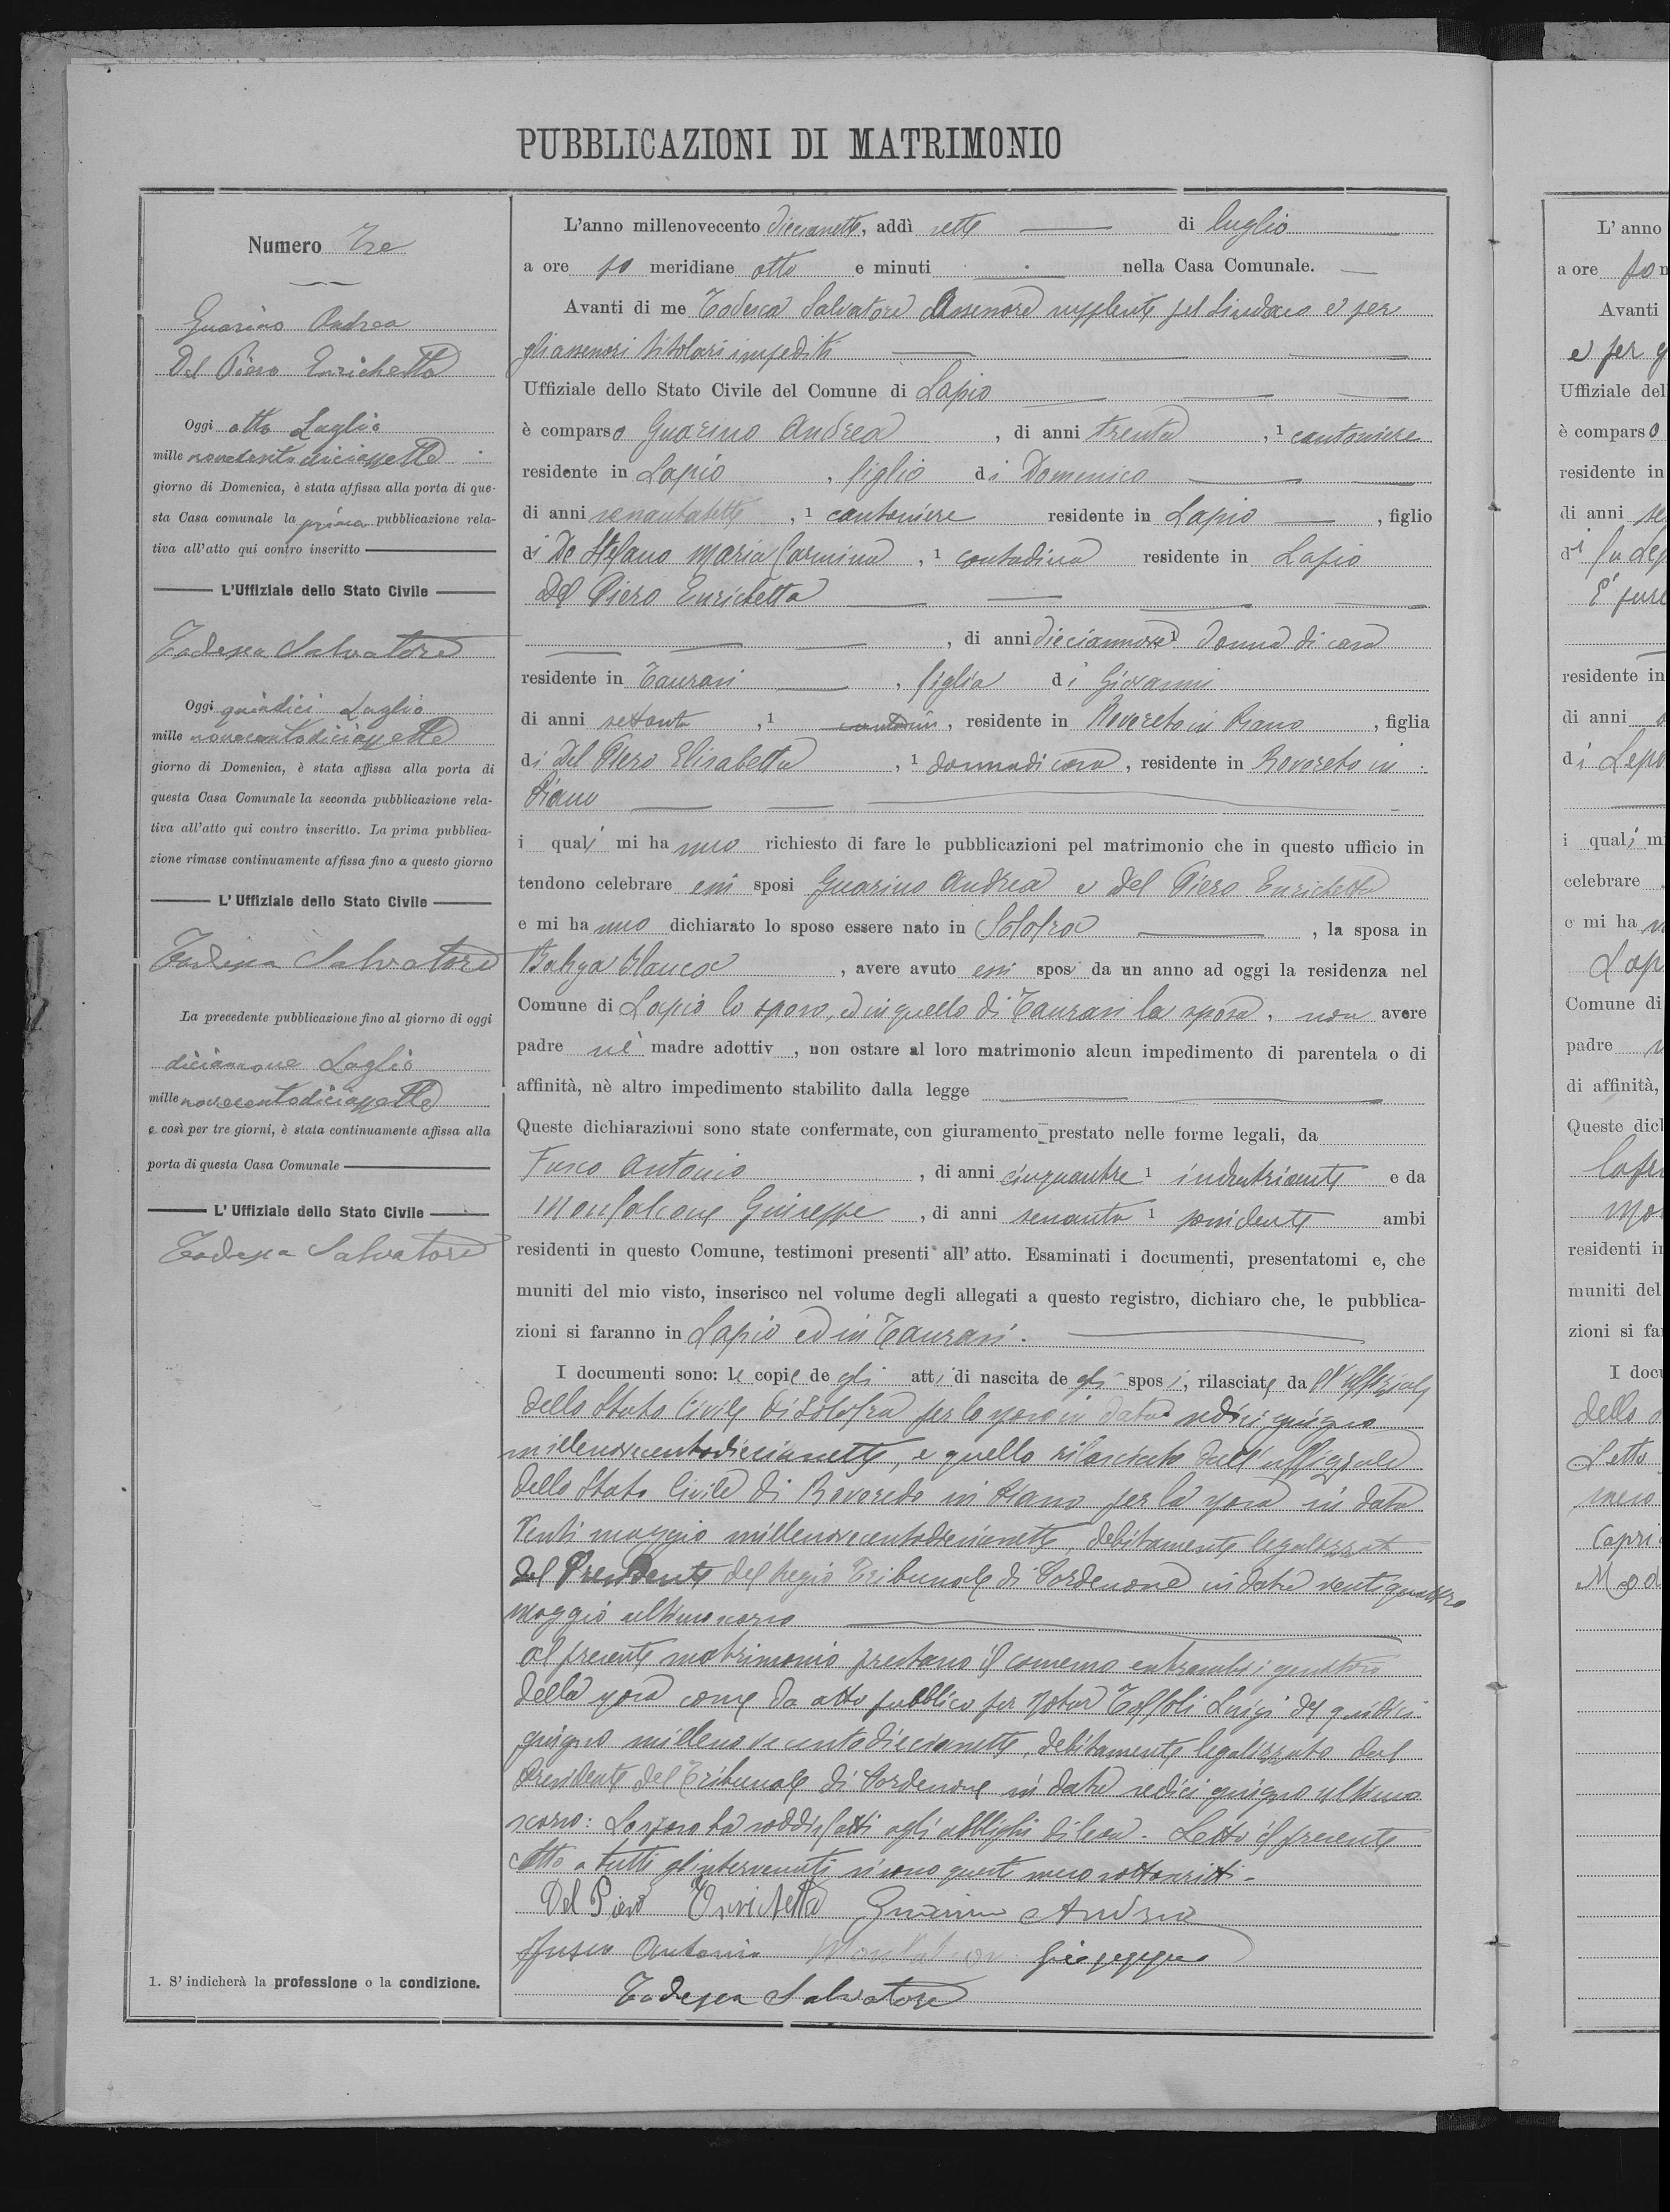 PUBBLICAZIONI DI MATRIMONIO
Numero Tre
Guarino Andrea
Del Piero Enrichetta
Oggi otto Luglio
mille novecentodiciassette
giorno di Domenica, è stata affissa alla porta di que-
sta Casa comunale la prima pubblicazione rela-
tiva all'atto qui contro inscritto
L'Uffiziale dello Stato Civile
Todesca Salvatore
Oggi quindici Luglio
mille novecentodiciassette
giorno di Domenica, è stata affissa alla porta di
questa Casa Comunale la seconda pubblicazione rela-
tiva all'atto qui contro inscritto. La prima pubblica-
zione rimase continuamente affissa fino a questo giorno
L'Uffiziale dello Stato Civile
Todesca Salvatore
La precedente pubblicazione fino al giorno di oggi
diciannove Luglio
mille novecentodiciassette
e così per tre giorni, è stata continuamente affissa alla
porta di questa Casa Comunale
L'Uffiziale dello Stato Civile
Todesca Salvatore
1. S' indicherà la professione o la condizione.
L'anno millenovecento diecissette, addì sette di luglio
a ore po meridiane otto e minuti nella Casa Comunale.
Avanti di me Todesca Salvatore Assessore supplente pel Sindaco e per
gli assessori titolari impediti
Uffiziale dello Stato Civile del Comune di Lapio
è comparso Guarino Andrea, di anni trenta, 1 cantoniere
residente in Lapio, figlio di Domenico
di anni sessantasette, 1 cantoniere residente in Lapio, figlio
di De Stefano Maria Carmina, 1 contadina residente in Lapio
Del Piero Enrichetta
, di anni dieciannove 1 donna di casa
residente in Taurasi, figlia di Giovanni
di anni settanta, 1 , residente in Rovereto in Piano, figlia
di Del Piero Elisabetta, 1 donna di casa, residente in Rovereto in
Piano
i quali mi ha nno richiesto di fare le pubblicazioni pel matrimonio che in questo ufficio in
tendono celebrare essi sposi Guarino Andrea e Del Piero Enrichetta
e mi ha nno dichiarato lo sposo essere nato in Solofra, la sposa in
Blanca, avere avuto essi sposi da un anno ad oggi la residenza nel
Comune di Lapio lo sposo, ed in quello di Taurasi la sposa, non avere
padre nè madre adottiv , non ostare al loro matrimonio alcun impedimento di parentela o di
affinità, nè altro impedimento stabilito dalla legge
Queste dichiarazioni sono state confermate, con giuramento prestato nelle forme legali, da
Fusco Antonio, di anni cinquantre 1 industriante e da
Monfalcone Giuseppe, di anni sessanta 1 possidente ambi
residenti in questo Comune, testimoni presenti all' atto. Esaminati i documenti, presentatomi e, che
muniti del mio visto, inserisco nel volume degli allegati a questo registro, dichiaro che, le pubblica-
zioni si faranno in Lapio ed in Taurasi.
I documenti sono: le copie de gli atti di nascita de gli sposi, rilasciate da ll'uffiziale
dello Stato Civile di Solofra per lo sposo in data sedici giugno
millenovecentodiecissette, e quello rilasciato dall'uffiziale
dello Stato Civile di Roveredo in Piano per la sposa in data
venti maggio millenovecentodiecissette, debitamente legalizzato
dal Presidente del Regio Tribunale di Pordenone in data ventiquattro
maggio ultimo scorso
Al presente matrimonio prestano il consenso entrambi i genitori
della sposa come da atto pubblico per Notar Toffoli Luigi del quindici
giugno millenovecentodiecissette, debitamente legalizzato dal
Presidente del Tribunale di Pordenone in data sedici giugno ultimo
scorso: Lo sposo ha soddisfatti agli obblighi di leva. Letto il presente
atto a tutti gl'intervenuti si sono questi meco sottoscritti.
Del Piero Enrichetta Guarino Andrea
Fusco Antonio Monfalcone Giuseppe
Todesca Salvatore
L' anno
a ore po
Avanti
e per
Uffiziale del
è comparso
residente in
di anni
di
residente in
di anni
di
i quali
celebrare
e mi ha
Comune di
padre
di affinità,
Queste dich
residenti in
muniti del
zioni si fa
I docu
dello
Letto
meco